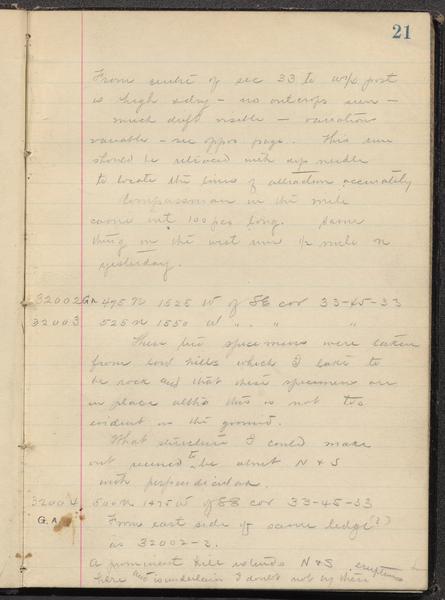 21
From centre of sec 33 to W¼ post
is high sdng - no outcrops seen -
much drift visible - variation
variable - see oppos page. This run
should be retraced with dip needle
to locate the lines of attraction accurately
Compassman in the mile
came out 100 pcs long. Same
thing on the west run ½ mile N
yesterday.
32002 GA 495 N 1525 W of SE cor 33-45-33
32003 525 N 1550 W " " "
These two specimens were taken
from low hills which I take to
be rock and that these specimens are
in place altho this is not too
evident on the ground.
What structure I could make
out seemed to be about N & S
with perpendicular
32004 500 N 1475 W of SE cor 33-45-33
G.A. From east side of same ledge (?)
as 32002-3.
A prominent hill extends N & S.
here and is underlain I doubt not by these